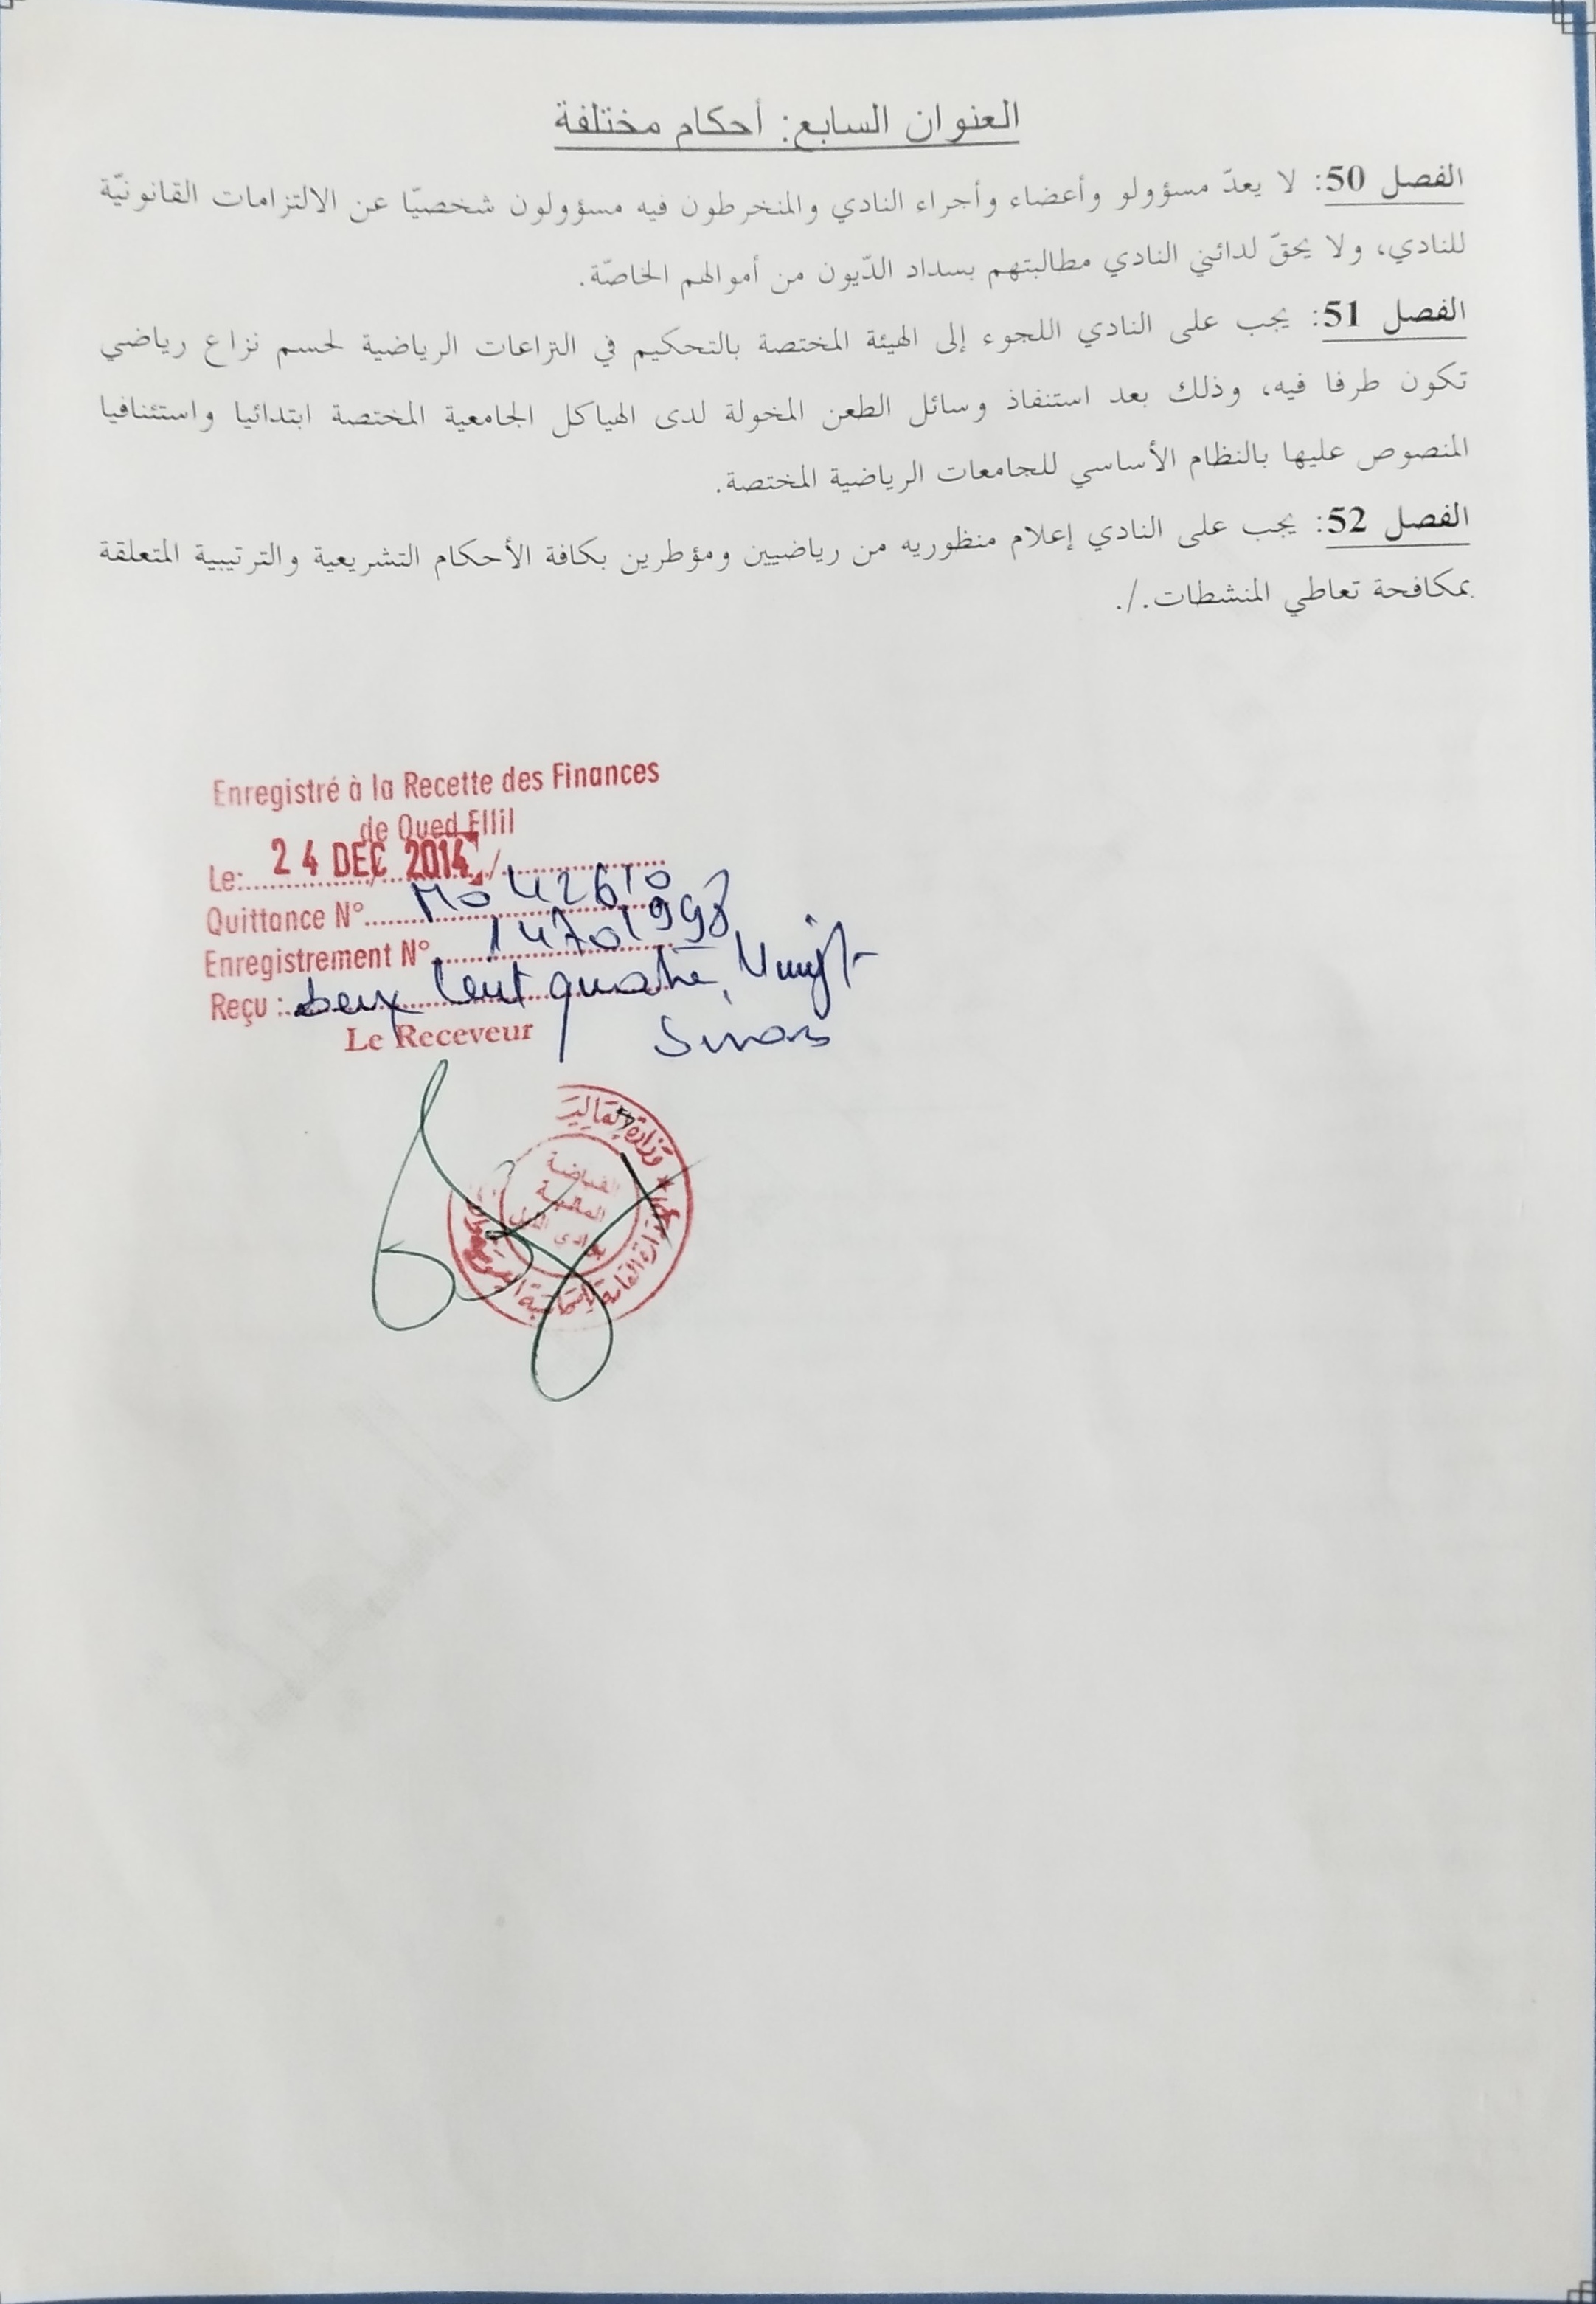 العنوان السابع: أحكام مختلفة
الفصل 50: لا يعدّ مسؤولو وأعضاء وأجراء النادي والمنخرطون فيه مسؤولون شخصيّا عن الالتزامات القانونيّة
للنادي، ولا يحقّ لدائني النادي مطالبتهم بسداد الدّيون من أموالهم الخاصّة.
الفصل 51: يجب على النادي اللجوء إلى الهيئة المختصة بالتحكيم في النزاعات الرياضية لحسم نزاع رياضي
تكون طرفا فيه، وذلك بعد استنفاذ وسائل الطعن المخولة لدى الهياكل الجامعية المختصة ابتدائيا واستئنافيا
المنصوص عليها بالنظام الأساسي للجامعات الرياضية المختصة.
الفصل 52: يجب على النادي إعلام منظوريه من رياضيين ومؤطرين بكافة الأحكام التشريعية والترتيبية المتعلقة
بمكافحة تعاطي المنشطات./.
Enregistré à la Recette des Finances
de Oued Ellil
Le: 24 DEC 2014
Quittance N° M042610
Enregistrement N° 14701998
Reçu : deux Cent quatre Vingt
Le Receveur
القباضة
المالية
بوادي الليل